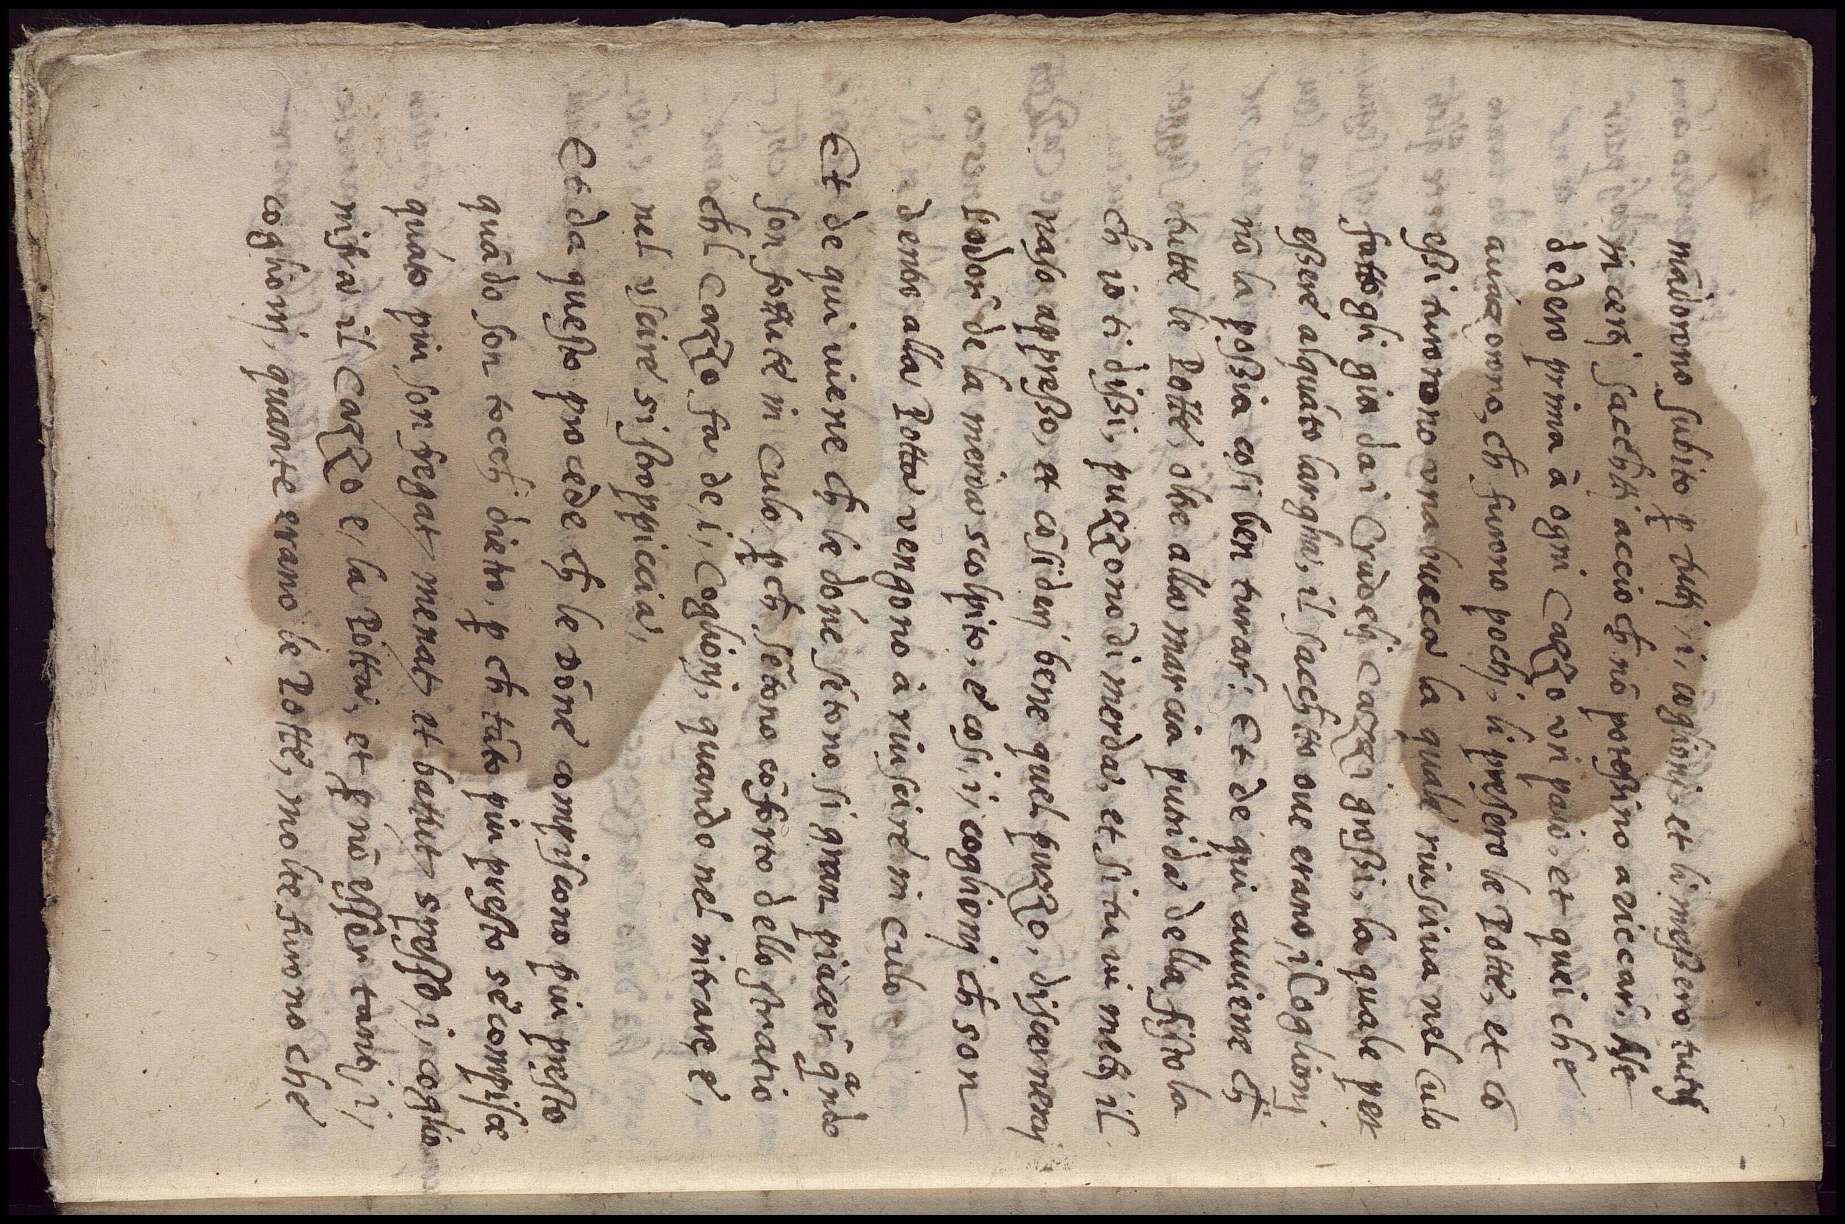 mādorono subito ꝑ tuttj i, coglionj, et li messero tuttj
in certj sacchttj accio ch nō potessino azziccar. Ne
dedero prima ā ogni Cazzo vn paio, et quei che
auāzorono, ch furono pochj, li presero le Potte, et cō
essi turorono vna bucca la quale riusciua nel culo
fattogli gia da i Crudelj cazzi grossi, la quale per
essere alquāto largha, il sacchtto oue erano, i Coglionj
nō la possia cosi ben turar. Et de qui auuiene ch
tutte le Potte, oltre alla marcia putrida della fistola
ch io ti dissi, puzzono di merda, et si tu vi mettj il
naso appresso, et cōsiderj bene quel puzzo, discerneraj
l'odor de la merda scolpito, e cosi i, coglionj ch son
dentro alla Potta vengono à riuscire in culo
Et de qui viene ch le dōne sētono si gran piacer qñdo
son fottute in culo, ꝑch sētono cōforto dello stratio
chl Cazzo fa de, i, Coglionj, quando nel intrare, e,
nel vscire si stroppiccia,
Et da questo procede ch le dōne compiscono piu presto
quādo son tocch drieto, ꝑ ch tāto piu presto sē compisce
quāto piu son fregatj menatj et battutj spesso, i, coglionj
infra il Cazzo e, la Potta, et ꝑ nō esser tantj, i,
coglionj, quante erano le Potte, molte furono che